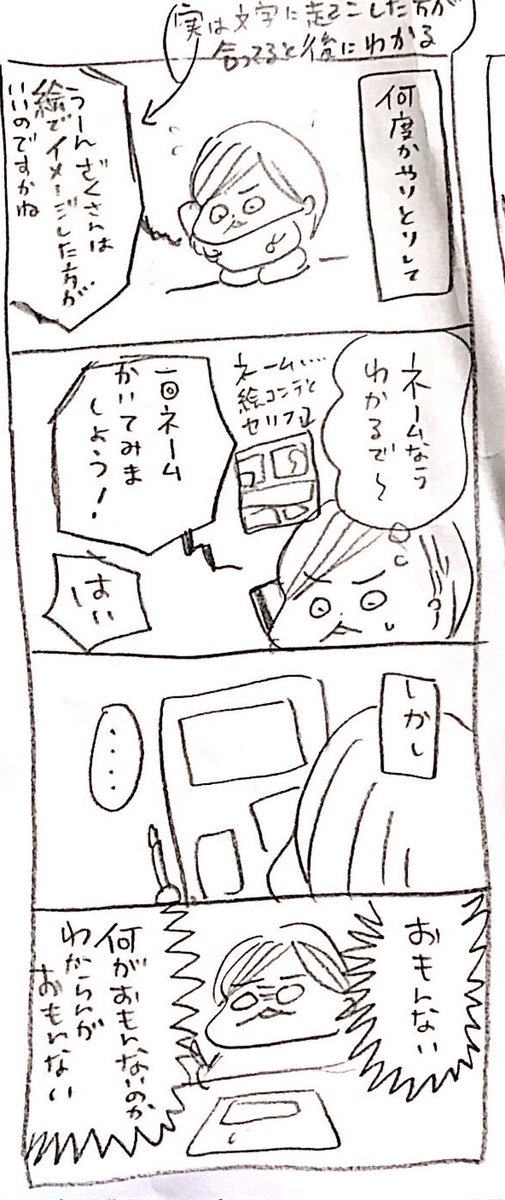 実は文字に起こした方が
合ってると後にわかる
何度かやりとりして
うーんざくさんは
絵でイメージした方が…
いいのですかね
ネームなう
わかるで〜
ネーム…
絵コンテと
セリフ
一回ネーム
かいてみま
しょう!
はい
しかし
....
おもんない
何がおもんないのか
わからんが
おもんない